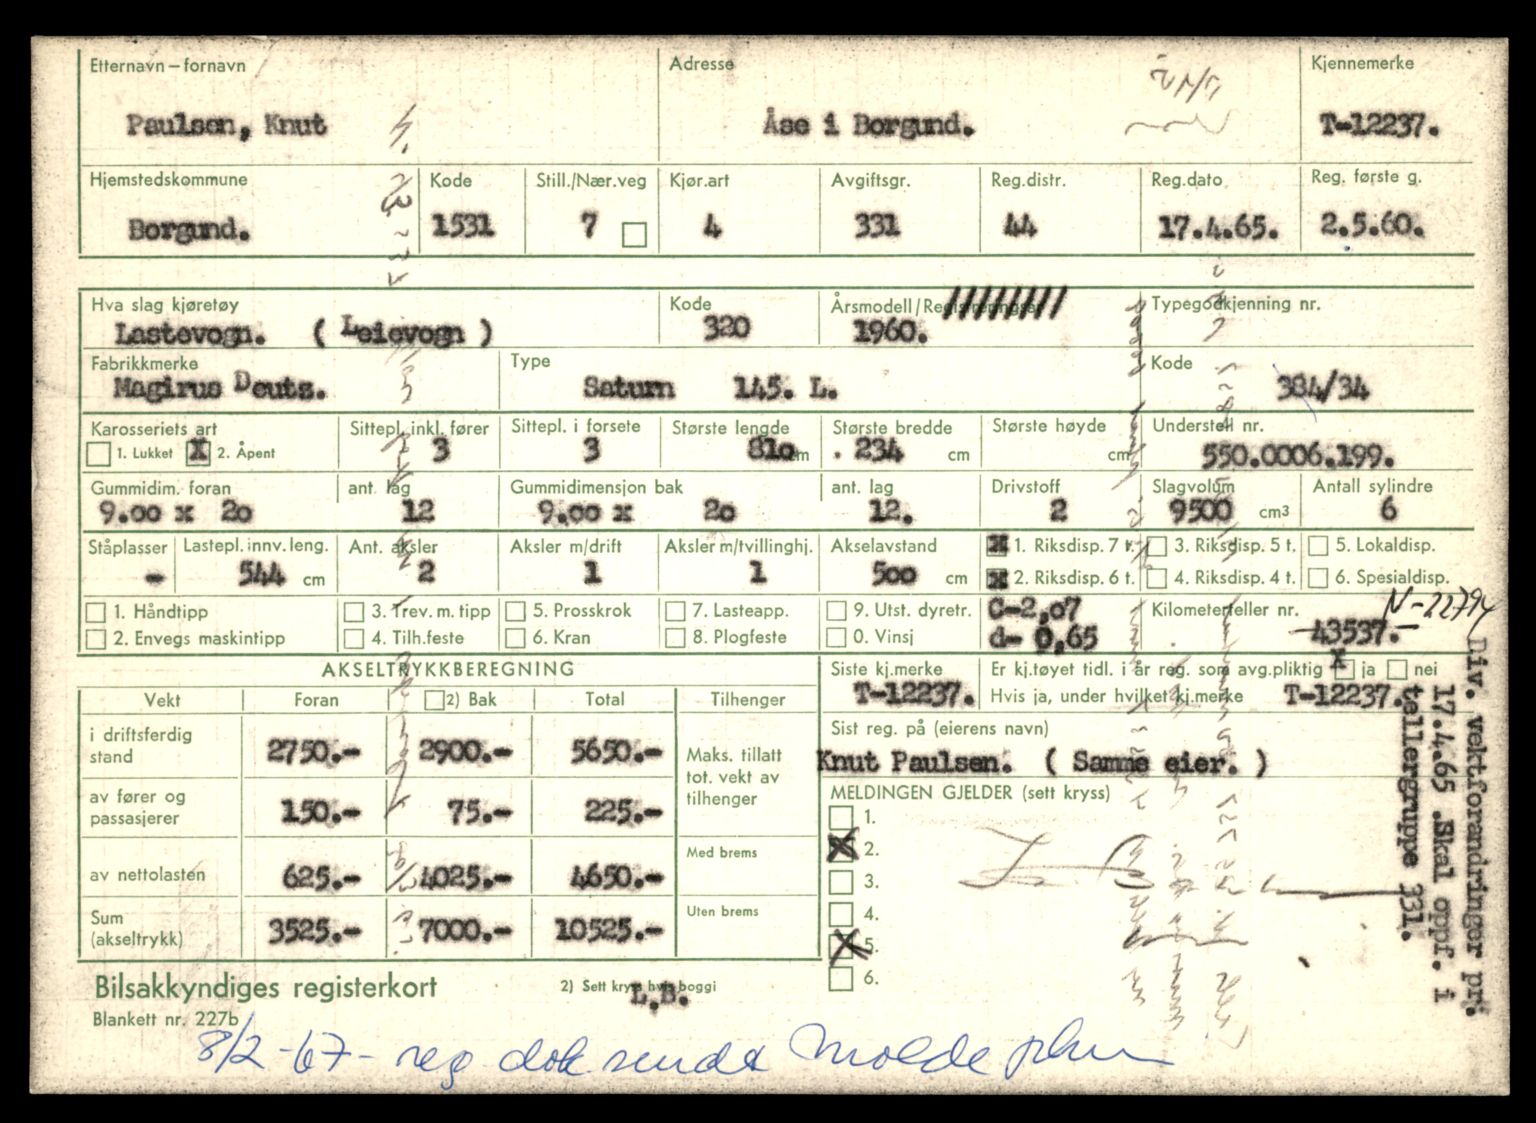 Etternavn – fornavn Adresse Kjennemerke
Paulsen, Knut Åse i Borgund. T-12237.
Hjemstedskommune Kode Still./Nær.veg Kjør.art Avgiftsgr. Reg.distr. Reg.dato Reg. første g.
Borgund. 1531 7 4 331 44 17.4.65. 2.5.60.
Hva slag kjøretøy Kode Årsmodell/Registreringsår Typegodkjenning nr.
Lastevogn. ( Leievogn ) 320 1960.
Fabrikkmerke Type Kode
Magirus Deuts. Saturn 145. L. 384/34
Karosseriets art Sittepl. inkl. fører Sittepl. i forsete Største lengde Største bredde Største høyde Understell nr.
1. Lukket X 2. Åpent 3 3 810 cm . 234 cm cm 550.0006.199.
Gummidim. foran ant. lag Gummidimensjon bak ant. lag Drivstoff Slagvolum Antall sylindre
9.00 x 20 12 9.00 x 20 12. 2 9500 cm³ 6
Ståplasser Lastepl. innv. leng. Ant. aksler Aksler m/drift Aksler m/tvillinghj. Akselavstand X 1. Riksdisp. 7 t. 3. Riksdisp. 5 t. 5. Lokaldisp.
- 544 cm 2 1 1 500 cm X 2. Riksdisp. 6 t. 4. Riksdisp. 4 t. 6. Spesialdisp.
1. Håndtipp 3. Trev. m. tipp 5. Prosskrok 7. Lasteapp. 9. Utst. dyretr. C-2,07 Kilometerteller nr. N-22794
2. Envegs maskintipp 4. Tilh.feste 6. Kran 8. Plogfeste 0. Vinsj d- 0,65 43537.-
AKSELTRYKKBEREGNING Siste kj.merke Er kj.tøyet tidl. i år reg. som avg.pliktig X ja nei
T-12237. Hvis ja, under hvilket kj.merke T-12237.
Vekt Foran 2) Bak Total Tilhenger
Sist reg. på (eierens navn)
i driftsferdig stand 2750.- 2900.- 5650.- Maks. tillatt tot. vekt av tilhenger
Knut Paulsen. ( Samme eier. )
MELDINGEN GJELDER (sett kryss)
av fører og passasjerer 150.- 75.- 225.-
1.
X 2.
av nettolasten 625.- 4025.- 4650.- Med brems
3.
4.
Sum (akseltrykk) 3525.- 7000.- 10525.- Uten brems
X 5.
6.
Div. vektforandringer pr.
17.4.65 .Skal oppf. i
tellergruppe 331.
Bilsakkyndiges registerkort 2) Sett kryss hvis boggi
L.B.
Blankett nr. 227b
8/2-67 - reg dok sendt Molde